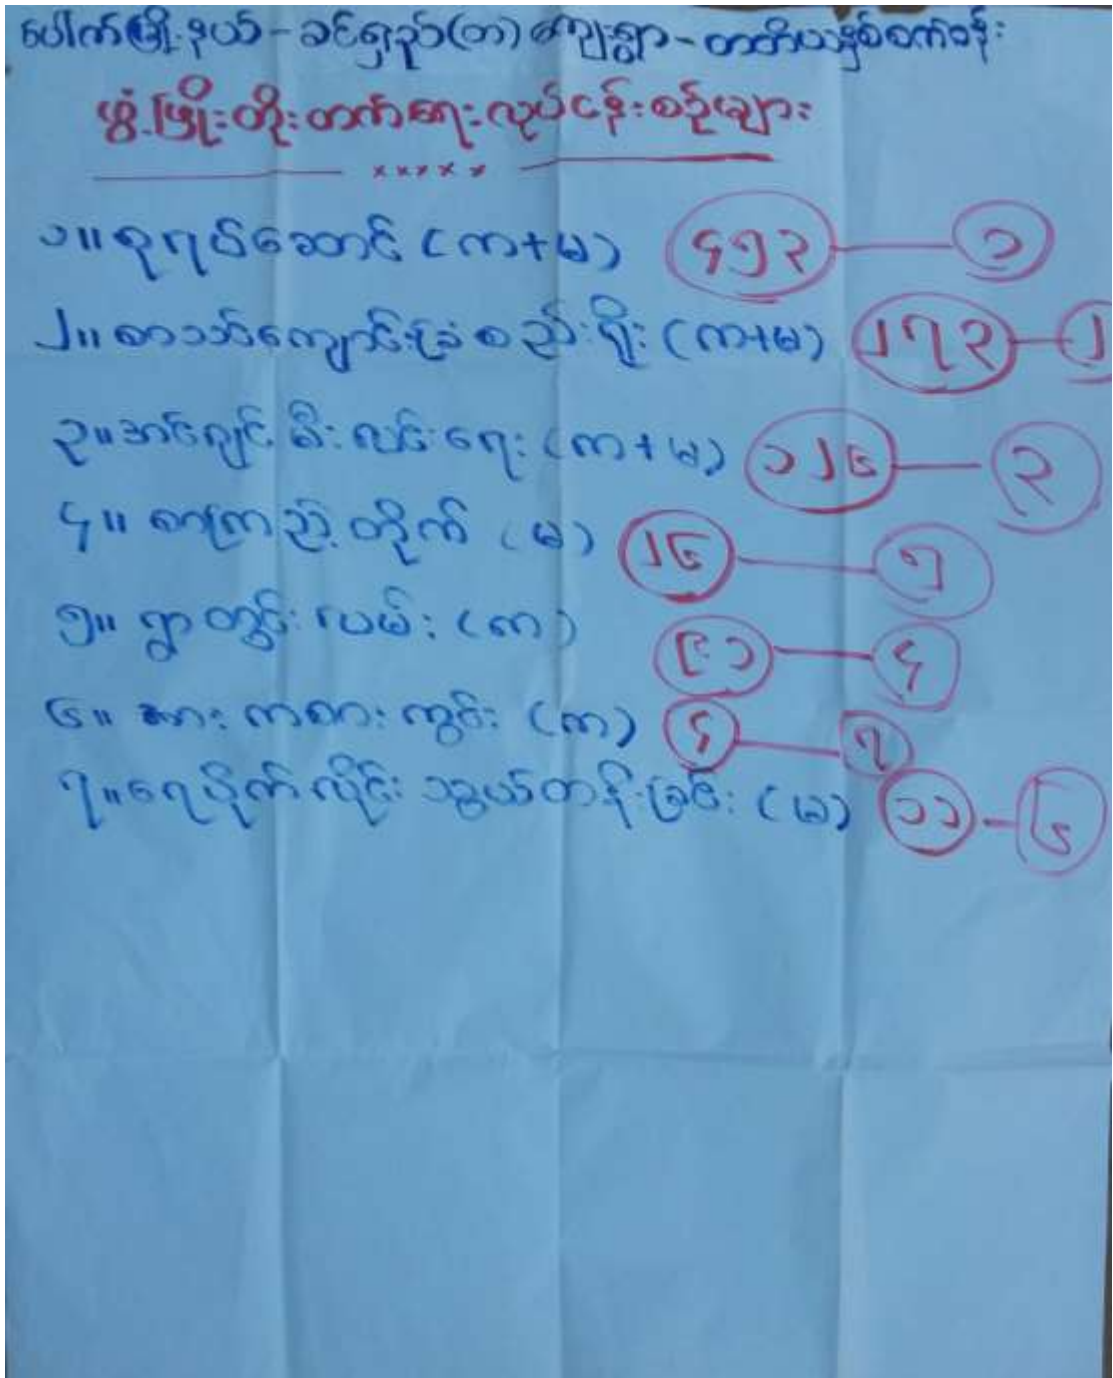 ပေါက်မြို့နယ် - ခင်ရှည်(တ) ကျေးရွာ - တတိယနှစ်စက်ဝန်း
ဖွံ့ဖြိုးတိုးတက်ရေးလုပ်ငန်းစဉ်များ
xxxxx
၁။ စုရပ်ဆောင် (က+မ) ၄၅၃ - ၁
၂။ စာသင်ကျောင်းခြံစည်းရိုး (က+မ) ၂၇၃ - ၂
၃။ အင်ဂျင်မီးလင်းရေး (က+မ) ၁၂၆ - ၃
၄။ စာကြည့်တိုက် (မ) ၂၆ - ၅
၅။ ရွာတွင်းလမ်း (က) ၉၁ - ၄
၆။ အားကစားကွင်း (က) ၄ - ၇
၇။ ရေပိုက်လိုင်းသွယ်တန်းခြင်း (မ) ၁၁ - ၆